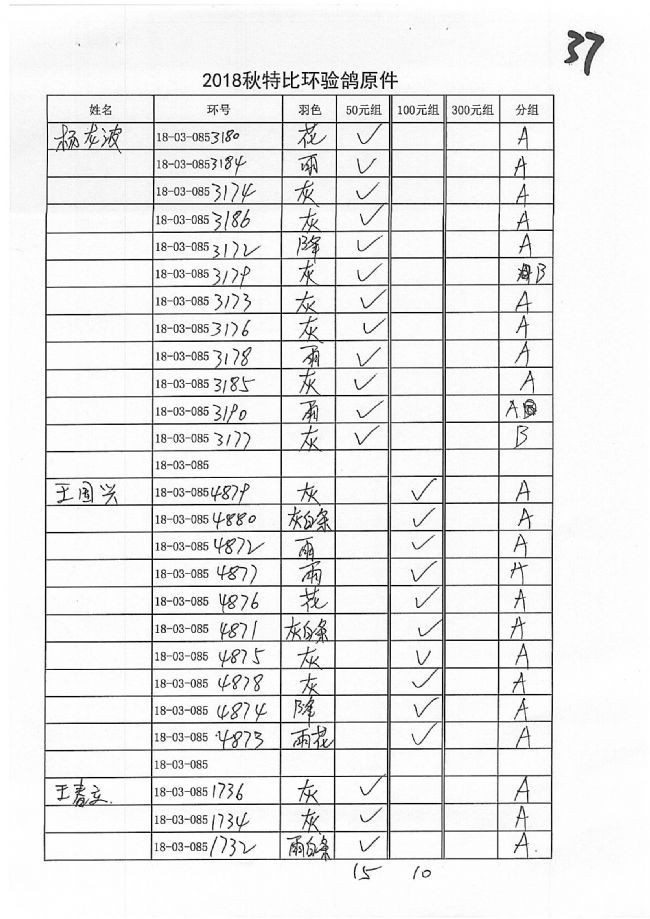 37
2018秋特比环验鸽原件
姓名 环号 羽色 50元组 100元组 300元组 分组
杨龙波 18-03-0853180 花 ✓ A
18-03-0853184 雨 ✓ A
18-03-0853174 灰 ✓ A
18-03-0853186 灰 ✓ A
18-03-0853172 降 ✓ A
18-03-0853179 灰 ✓ B
18-03-0853173 灰 ✓ A
18-03-0853176 灰 ✓ A
18-03-0853178 雨 ✓ A
18-03-0853185 灰 ✓ A
18-03-0853190 雨 ✓ A
18-03-0853177 灰 ✓ B
18-03-085
王国兴 18-03-0854879 灰 ✓ A
18-03-0854880 灰白条 ✓ A
18-03-0854872 雨 ✓ A
18-03-0854877 雨 ✓ A
18-03-0854876 花 ✓ A
18-03-0854871 灰白条 ✓ A
18-03-0854875 灰 ✓ A
18-03-0854878 灰 ✓ A
18-03-0854874 降 ✓ A
18-03-0854873 雨花 ✓ A
18-03-085
王春立 18-03-0851736 灰 ✓ A
18-03-0851734 灰 ✓ A
18-03-0851732 雨白条 ✓ A
15 10